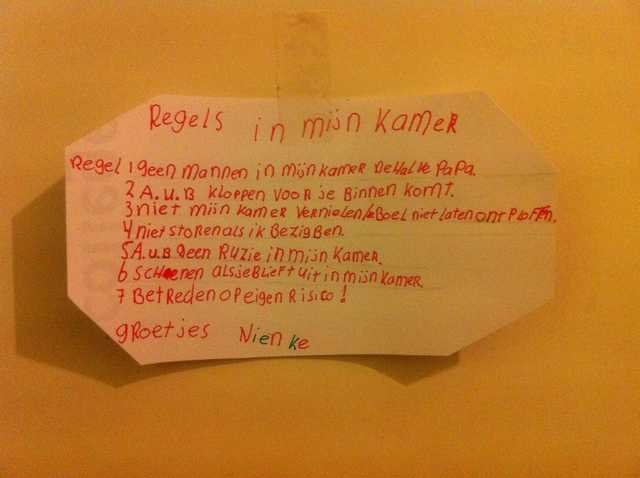 Regels in mijn kamer
Regel 1 geen mannen in mijn kamer behalve papa.
2 A.u.B kloppen voor je binnen komt.
3 niet mijn kamer vernielen/de Boel niet laten ontploffen.
4 niet storen als ik Bezig Ben.
5 A.u.B geen Ruzie in mijn kamer.
6 schoenen alsjeblieft uit in mijn kamer.
7 Betreden op eigen risico!
groetjes Nienke